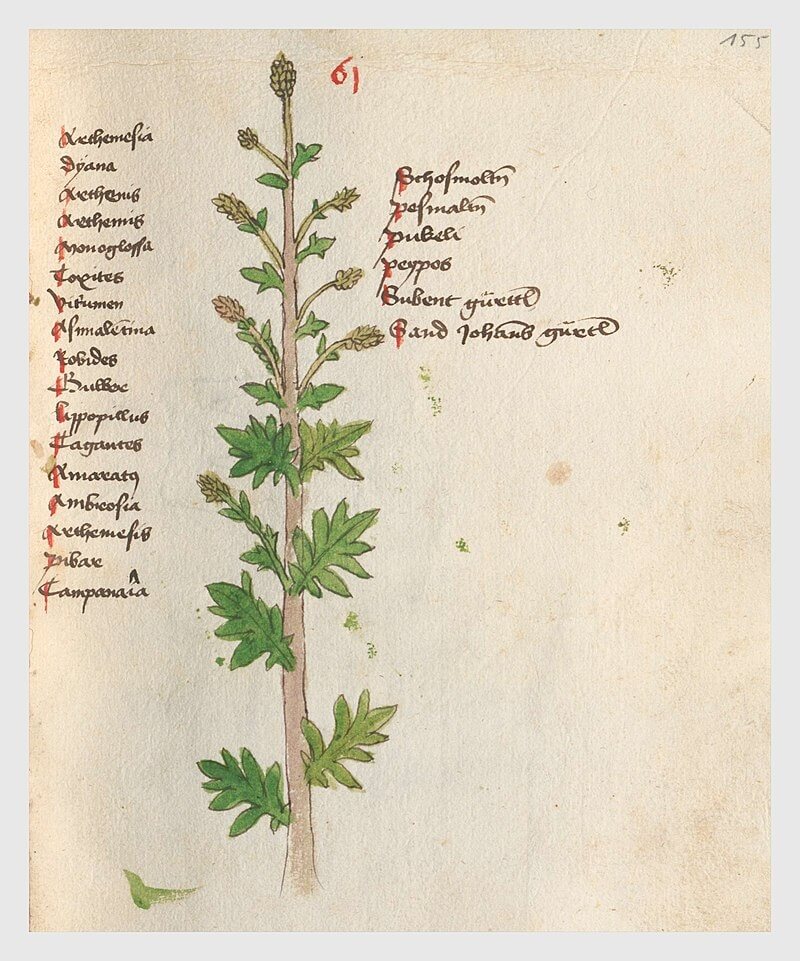 155
61
Arthemesia
dyana
Arthenus
Arthemis
Monoglossa
Toxites
Vitumen
Asmaletina
Robides
Bulboe
Lippopillus
Tagantes
Amaratq
Ambrosia
Arthemesis
pibar
Campanaria
Schosmoltn
pesmaltn
pukeli
peypos
Subent gürttl
Sand Johans gürttl